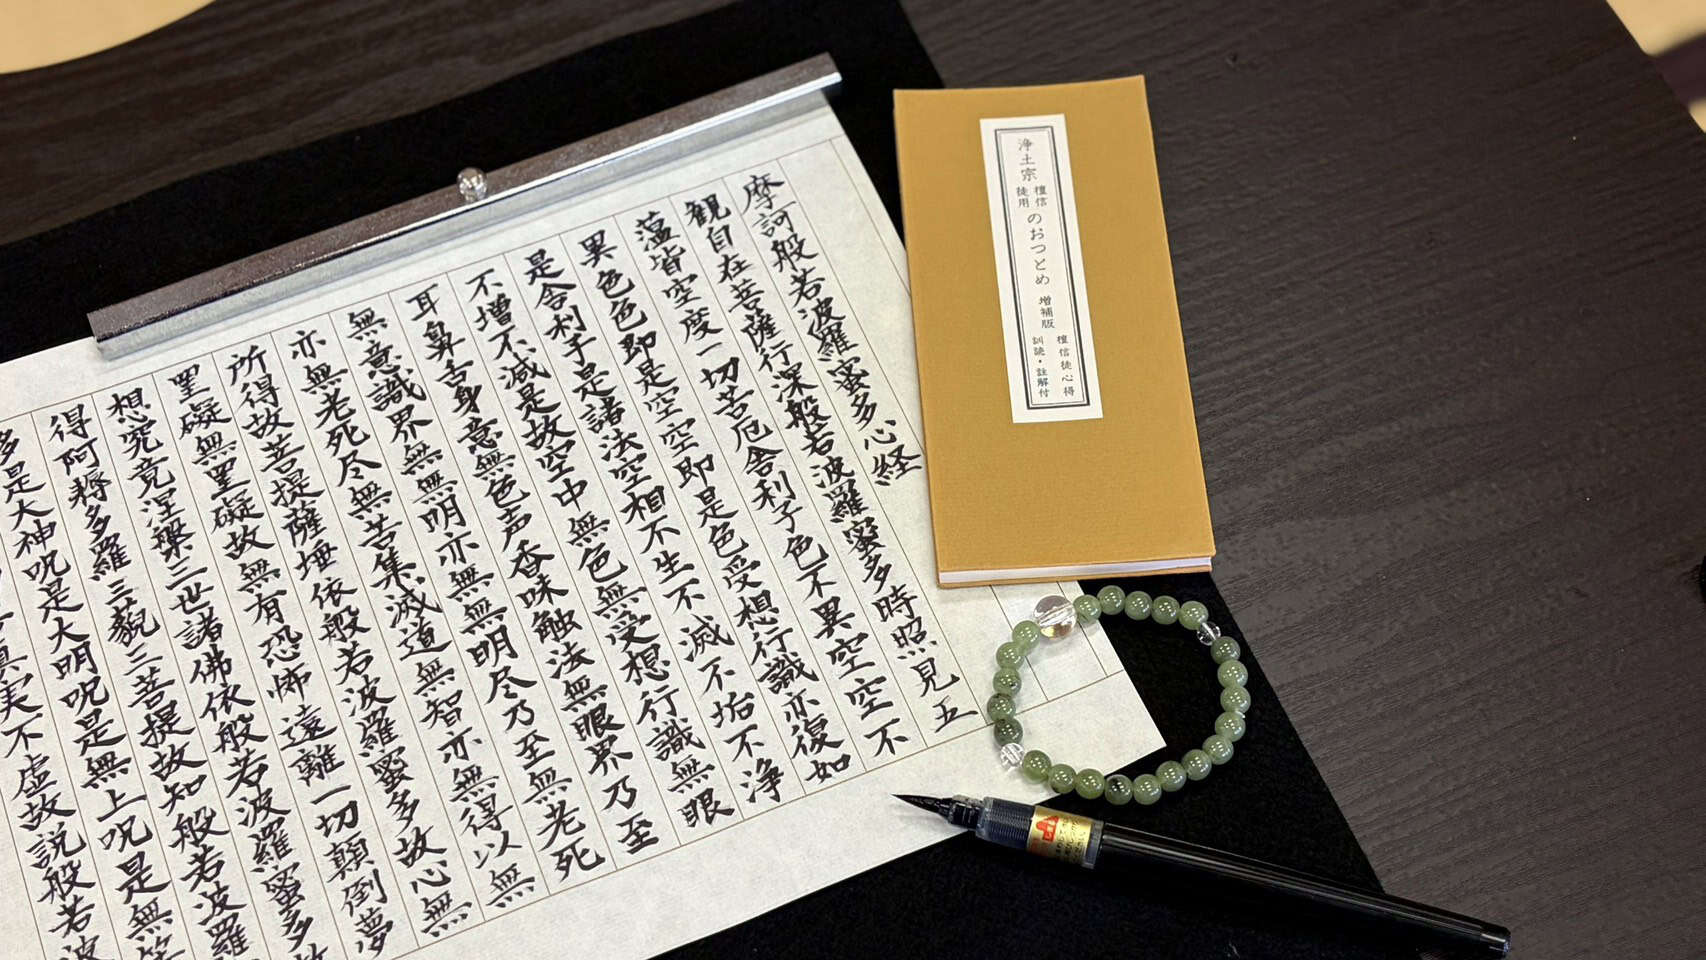 摩訶般若波羅蜜多心経
観自在菩薩行深般若波羅蜜多時照見五
蘊皆空度一切苦厄舎利子色不異空空不
異色色即是空空即是色受想行識亦復如
是舎利子是諸法空相不生不滅不垢不浄
不増不減是故空中無色無受想行識無眼
耳鼻舌身意無色声香味触法無眼界乃至
無意識界無無明亦無無明尽乃至無老死
亦無老死尽無苦集滅道無智亦無得以無
所得故菩提薩埵依般若波羅蜜多故心無
罣礙無罣礙故無有恐怖遠離一切顛倒夢
想究竟涅槃三世諸佛依般若波羅蜜多故
得阿耨多羅三藐三菩提故知般若波羅
多是大神呪是大明呪是無上呪是無等
真実不虚故説般若波
浄土宗
檀信
徒用
のおつとめ
増補版
檀信徒心得
訓読・註解付